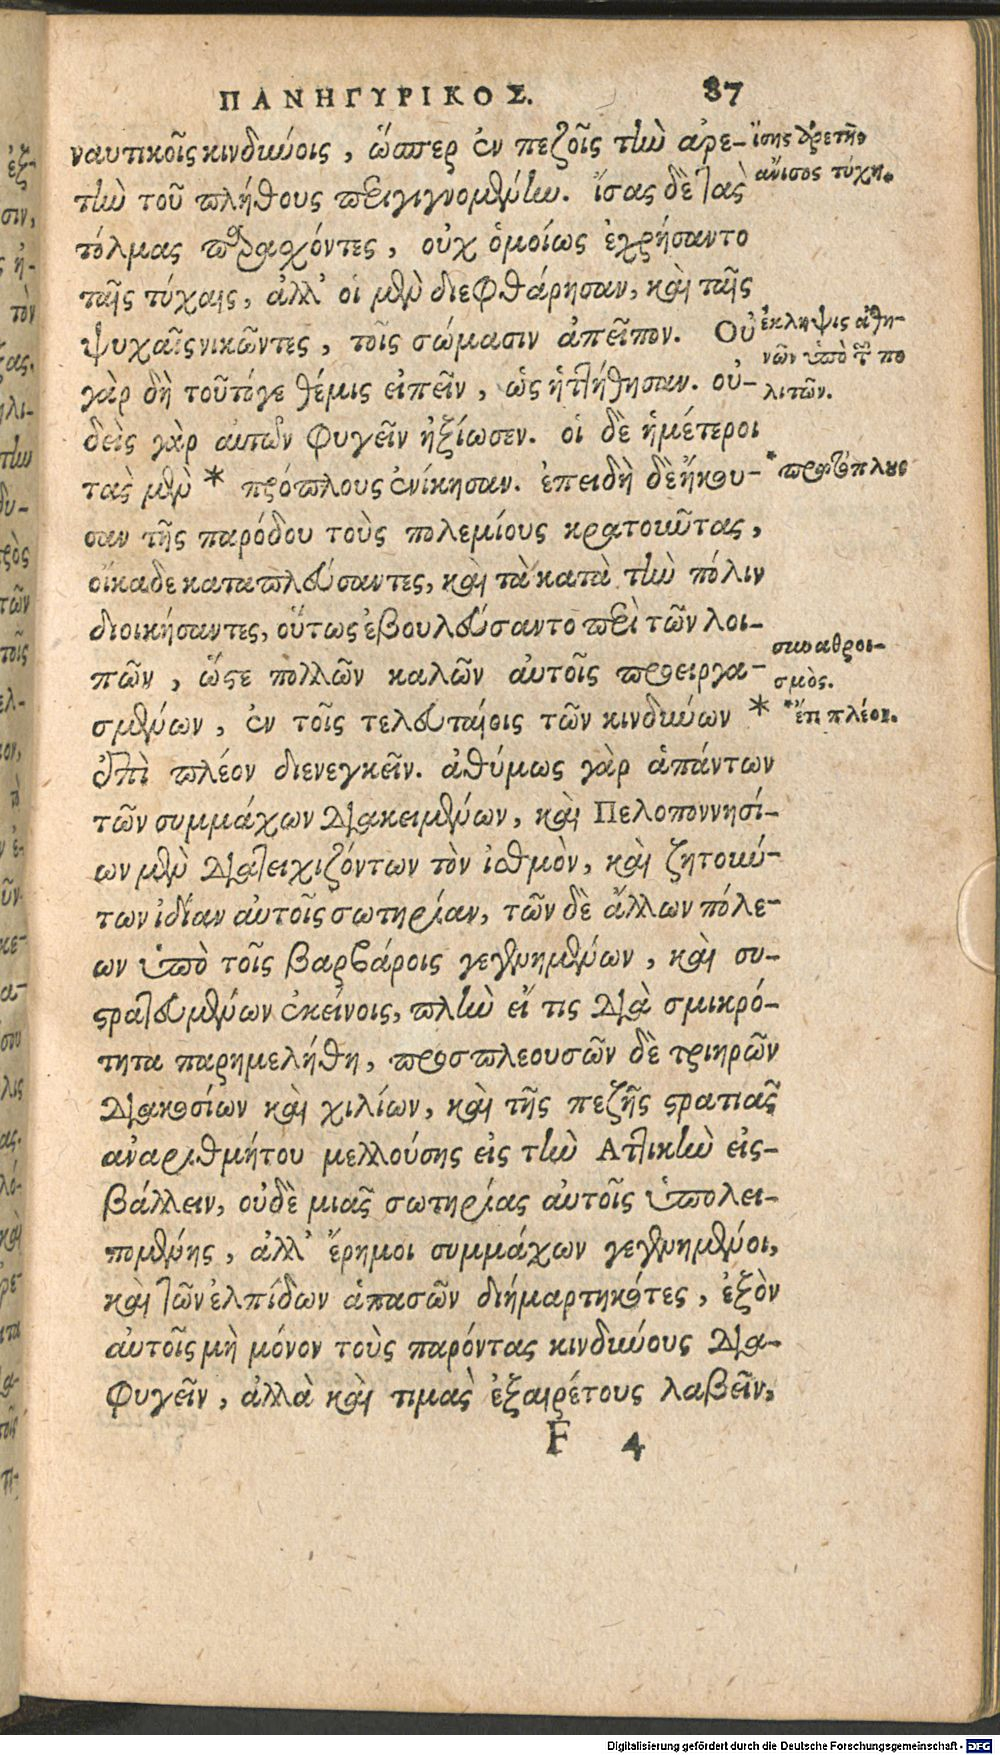 ΠΑΝΗΓΥΡΙΚΟΣ. 87
ναυτικοῖς κινδύνοις, ὥσπερ ἐν πεζοῖς τὴν ἀρε-
τὴν τοῦ πλήθους περιγιγνομένην. ἴσας δὲ τὰς
τόλμας παρασχόντες, οὐχ ὁμοίως ἐχρήσαντο
ταῖς τύχαις, ἀλλ' οἱ μὲν διεφθάρησαν, καὶ ταῖς
ψυχαῖς νικῶντες, τοῖς σώμασιν ἀπεῖπον. Οὐ
γὰρ δὴ τοῦτόγε θέμις εἰπεῖν, ὡς ἡττήθησαν. οὐ-
δεὶς γὰρ αὐτῶν φυγεῖν ἠξίωσεν. οἱ δὲ ἡμέτεροι
τὰς μὲν * πρόπλους ἐνίκησαν. ἐπειδὴ δὲ ἤκου-
σαν τῆς παρόδου τοὺς πολεμίους κρατοῦντας,
οἴκαδε καταπλεύσαντες, καὶ τὰ κατὰ τὴν πόλιν
διοικήσαντες, οὕτως ἐβουλεύσαντο περὶ τῶν λοι-
πῶν, ὥστε πολλῶν καλῶν αὐτοῖς προειργα-
σμένων, ἐν τοῖς τελευταίοις τῶν κινδύνων *
ἐπὶ πλέον διενεγκεῖν. ἀθύμως γὰρ ἁπάντων
τῶν συμμάχων διακειμένων, καὶ Πελοποννησί-
ων μὲν διατειχιζόντων τὸν ἰσθμὸν, καὶ ζητούν-
των ἰδίαν αὐτοῖς σωτηρίαν, τῶν δὲ ἄλλων πόλε-
ων ὑπὸ τοῖς βαρβάροις γεγενημένων, καὶ συ-
στρατευμένων ἐκείνοις, πλὴν εἴ τις διὰ σμικρό-
τητα παρημελήθη, προσπλεουσῶν δὲ τριηρῶν
διακοσίων καὶ χιλίων, καὶ τῆς πεζῆς στρατιᾶς
ἀναριθμήτου μελλούσης εἰς τὴν Ἀττικὴν εἰς-
βάλλειν, οὐδὲ μιᾶς σωτηρίας αὐτοῖς ὑπολει-
πομένης, ἀλλ' ἔρημοι συμμάχων γεγενημένοι,
καὶ τῶν ἐλπίδων ἁπασῶν διημαρτηκότες, ἐξὸν
αὐτοῖς μὴ μόνον τοὺς παρόντας κινδύνους δια-
φυγεῖν, ἀλλὰ καὶ τιμὰς ἐξαιρέτους λαβεῖν,
F 4
ἴσης ἀρετῆς
ἄνισος τύχη.
ἔκληψις ἀθη-
νῶν ὑπὸ τῶν πο
λιτῶν.
* πρωτόπλους
συναθροι-
σμὸς.
* ἔτι πλέον.
Digitalisierung gefördert durch die Deutsche Forschungsgemeinschaft - DFG